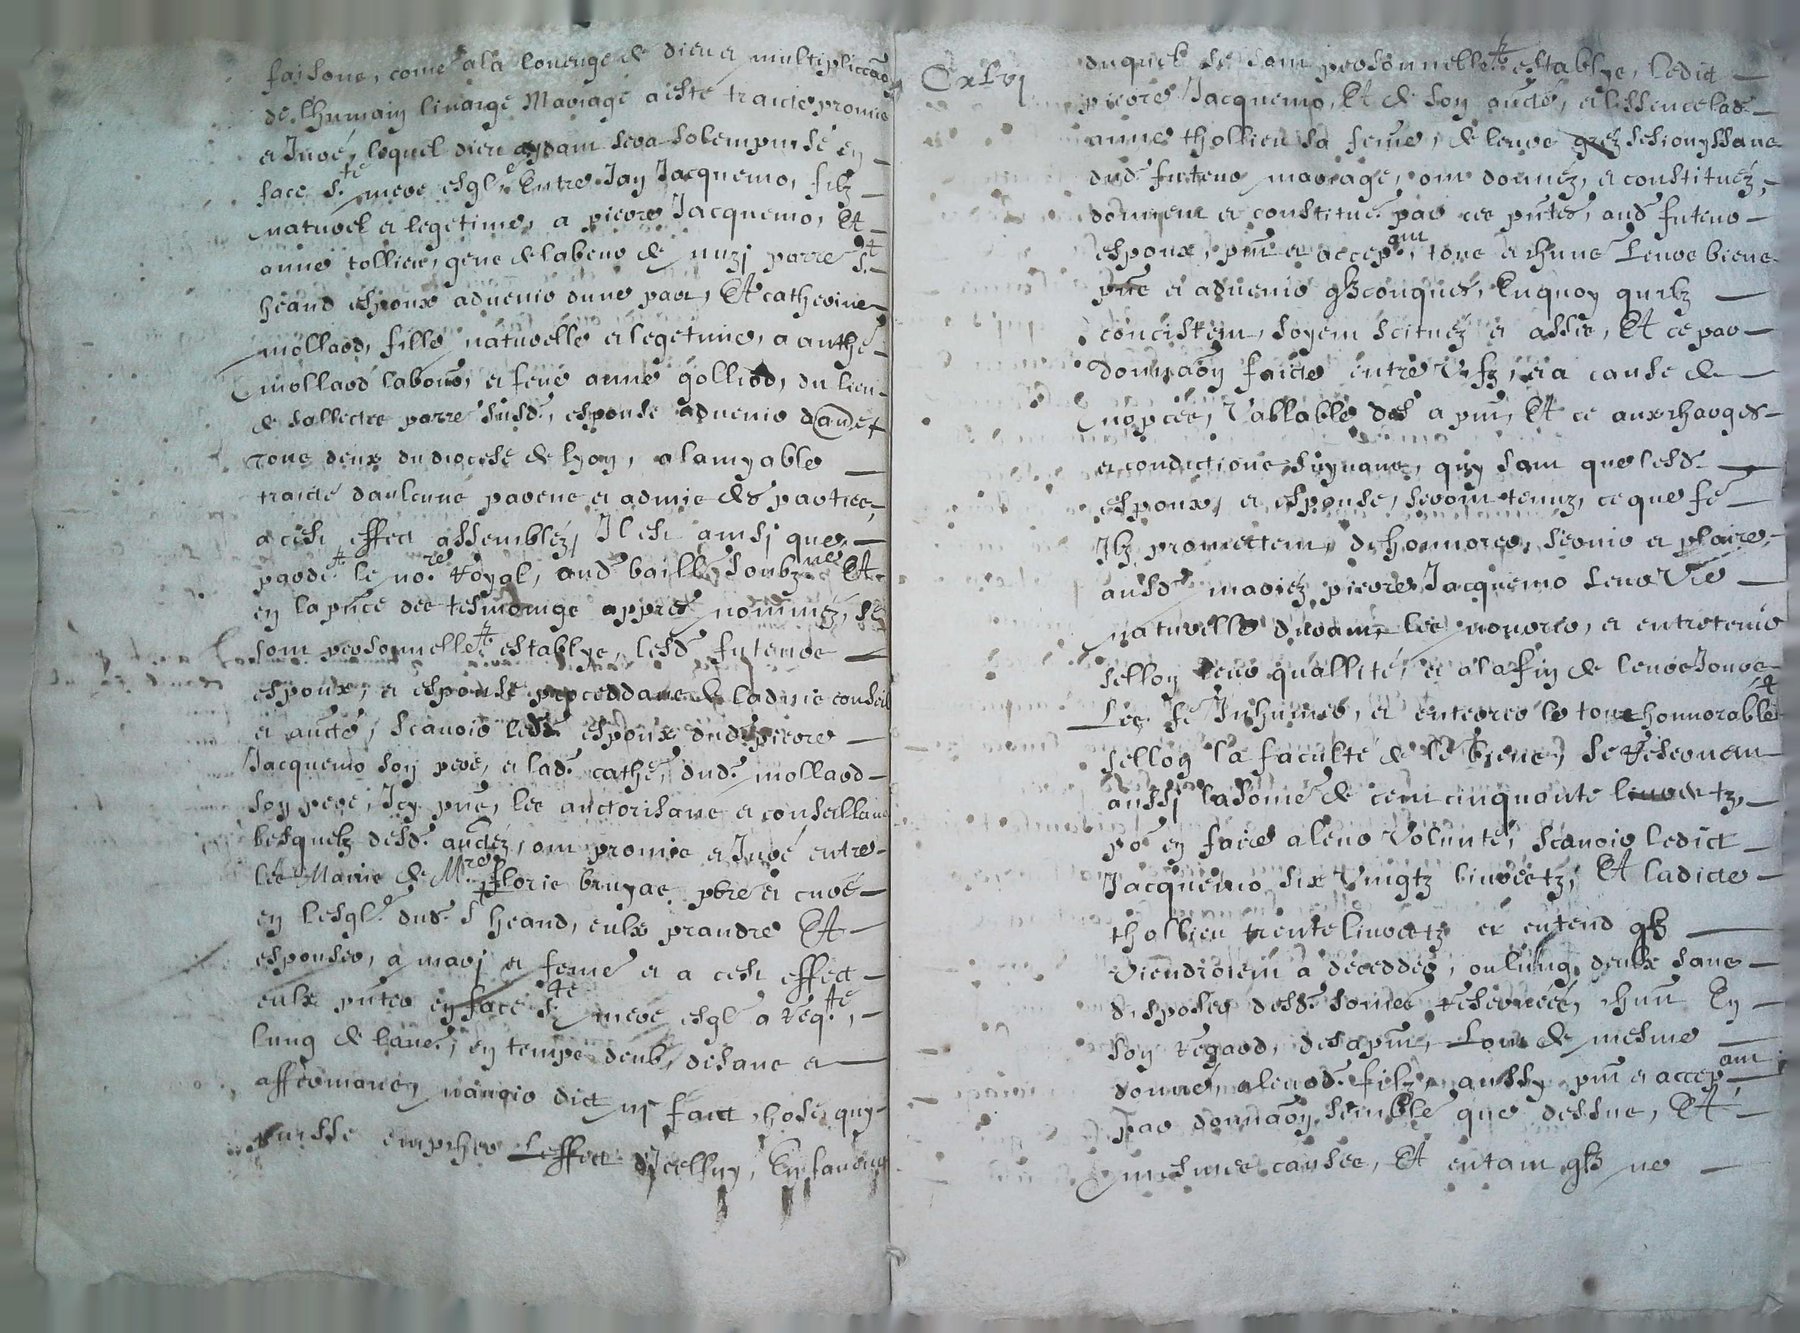 faisons, come a la louenge de dieu et multiplicaõn
de lhumain linaige Mariage a esté traicté promis
et Juré, lequel dieu aydant sera solempnisé en
face s.te mere esgl.e Entre Jan Jacquemo, filz
naturel et legetime, a pierre Jacquemo, Et
anne tollieu, gens de labeur de parre s.t
heand espoux advenir dune part, Et catherine
mollard, fille naturelle et legetime, a anthe
mollard labour, et feue anne golliod, du lieu
de sallectes parre susd. espouse advenir daude
tous deux du diocese de lyon, a lamyable
traicté daulcuns parens et admis des parties,
a cest effect assemblez, Il est ainsj que,
pard.t le no.re Royal, aud. baill. soubz.né Et
en la pñce des tesmoings appres nommez, se
sont personnelle.t establys, lesd. futeurs
espoux, et espouse proceddans de ladvis conseil
et aucté, scavoir led. espoux dud. pierre
Jacquemo son pere, et lad. cathe. dud. mollard
son pere, Icy pñs, les auctorisans et conseillans
lesquelz desd. auctéz, ont promis et Juré entre
les Mains de M.re floris bruyas pbre et curé
en lesgl.e dud. s.t heand, eulx prandre Et
espouser, a marj et feme et a cest effect
eulx pñter en face s.te mere esgl. a req.te,
lung de laue., en temps deub, disans et
affermans, navoir dict nj faict chose quy
puisse empcher Leffect dIcelluy, En faveur
Cxlvj
duquel se sont personnelle.t establys, ledict
pierre Jacquemo, Et de son aucté, et lissence lad.
anne thollieu sa feme, de leurs grez sesionyssans
dud. futeur mariage, ont donnéz, et constituéz,
donnent et constitue. par ces pñtes, aud. futeur
espoux, pñt et accep.ant, tous et chuns Leurs biens
pñs et advenir qlzconques, En quoy quilz
concistent, soyent scituéz et assis, Et ce par
donnaõn faicte entre vifz, et a cause de
nopces, Vallable des a pñt, Et ce aux charges
et condictions suyvans, quy sont que lesd.
espoux, et espouse, seront tenuz, ce que se
Ilz promettent, dhonnorer, servir et plaire
ausd. mariez pierre Jacquemo Leur Vie
naturelle durant, les nourrir, et entretenir
sellon leur quallité, et a la fin de leurs Jours
Les fe. Inhumer, et enterrer le tout honnorable.t
sellon la faculté de le. biens, se Reservent
aussj la some de cent cinquante livretz,
po. en faire a leur Volunté, scavoir ledict
Jacquemo six Vingtz livretz, Et ladicte
thollieu trente livretz et entend qlz
Viendroient a decedder, ou lung deulx sans
disposer desd. somes reservées, chun En
son regard, des a pñt, Lont de mesme
donné, a leurd. filz, aussy pñt et accep.ant
par donnaõn semble que dessus, Et
mesmes causes, Et entant qlz ne